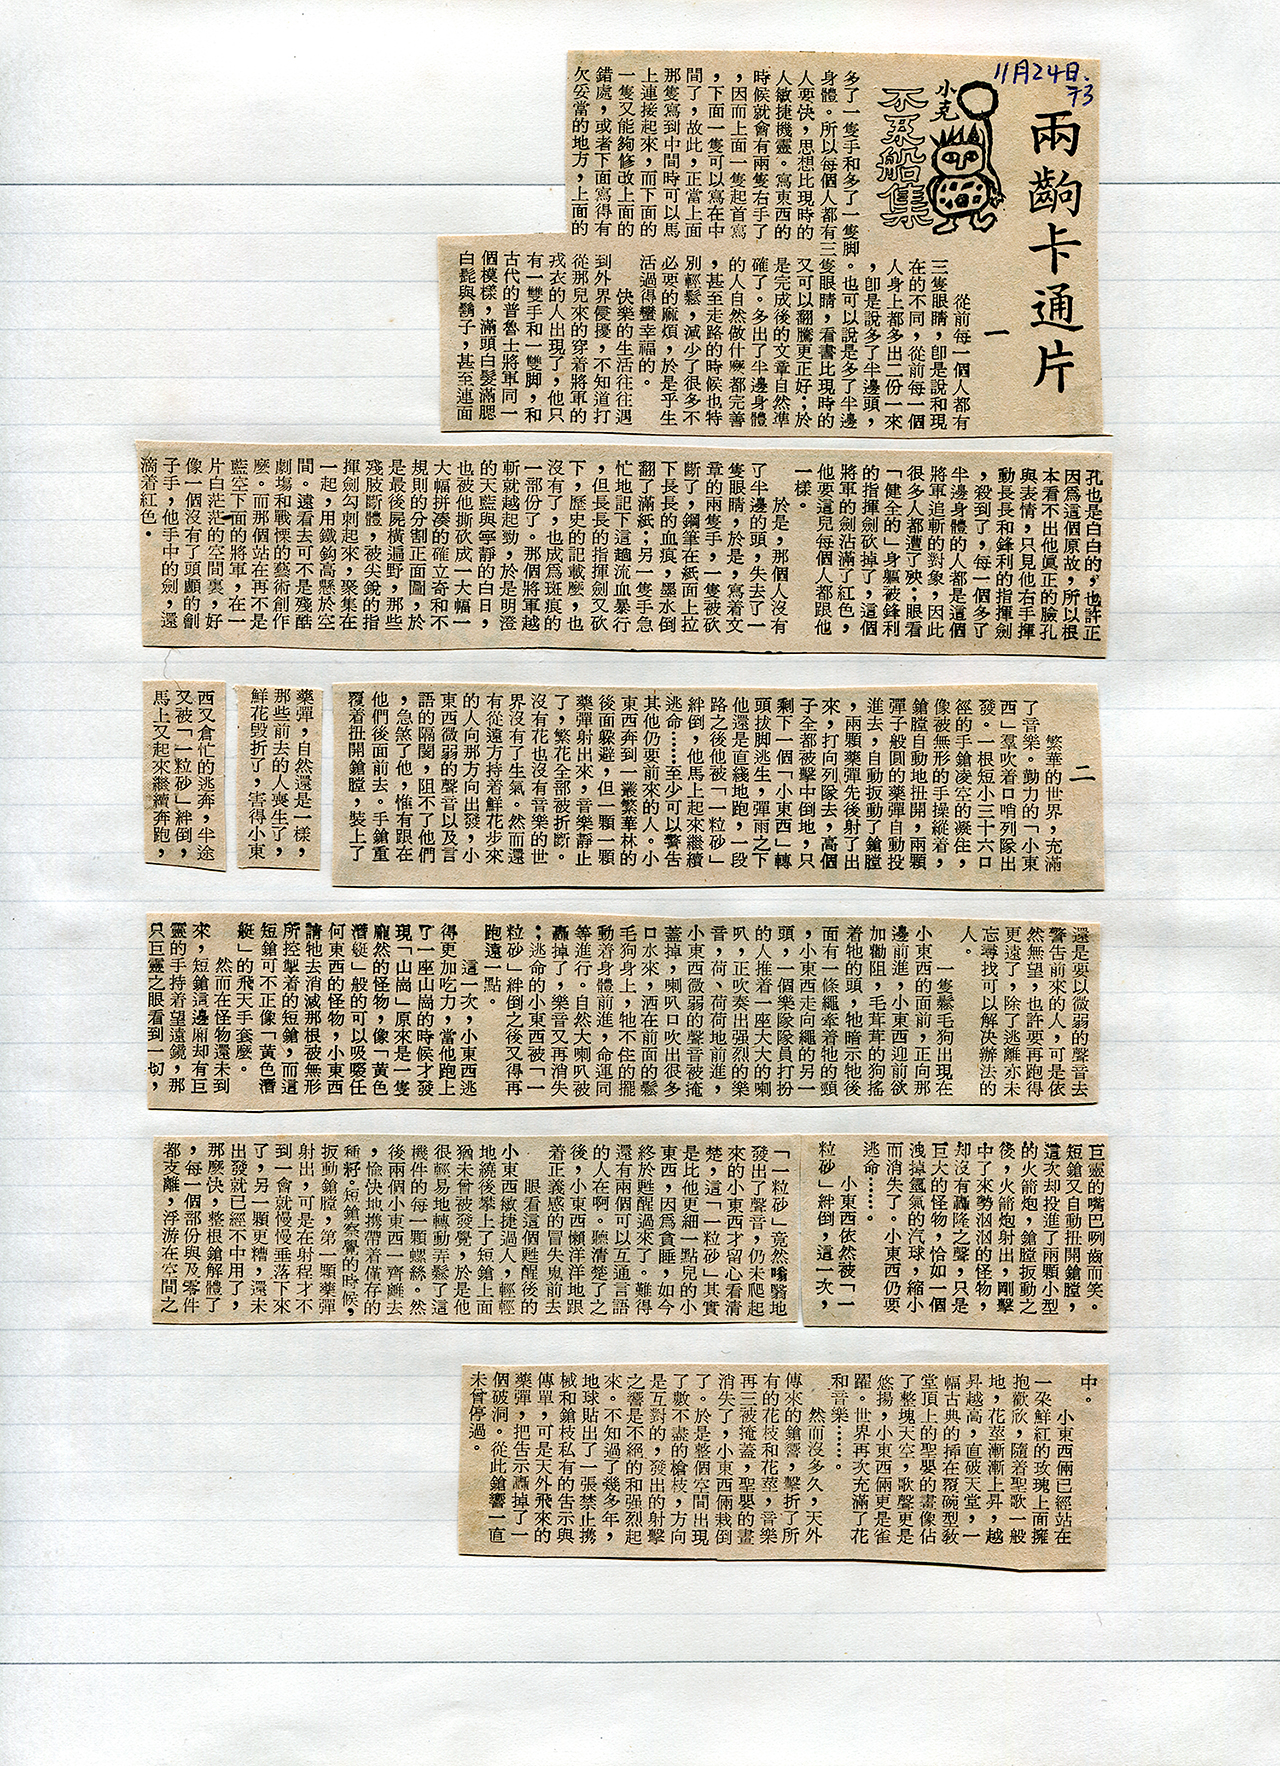 11月24日.73
兩齣卡通片
小克
不系船集
一
從前每一個人都有
三隻眼睛，卽是說和現
在的不同，從前每一個
人身上都多出二份一來
，卽是說多了半邊頭，
多了一隻手和多了一隻脚。也可以說是多了半邊
身體。所以每個人都有三隻眼睛，看書比現時的
人要快，思想比現時的
人敏捷機靈。寫東西的
時候就會有兩隻右手了
，因而上面一隻起首寫
，下面一隻可以寫在中
間了，故此，正當上面
那隻寫到中間時可以馬
上連接起來，而下面的
一隻又能夠修改上面的
錯處，或者下面寫得有
欠妥當的地方，上面的
又可以翻騰更正好；於
是完成後的文章自然準
確了。多出了半邊身體
的人自然做什麼都完善
，甚至走路的時候也特
別輕鬆，減少了很多不
必要的麻煩，於是乎生
活過得蠻幸福的。
快樂的生活往往遇
到外界侵擾，不知道打
從那兒來的穿着將軍的
戎衣的人出現了，他只
有一雙手和一雙脚，和
古代的普魯士將軍同一
個模樣，滿頭白髮滿腮
白髭與鬍子，甚至連面
孔也是白白的，也許正
因爲這個原故，所以根
本看不出他眞正的臉孔
與表情，只見他右手揮
動長長和鋒利的指揮劍
，殺到了，每一個多了
半邊身體的人都是這個
將軍追斬的對象，因此
很多人都遭了殃；眼看
「健全的」身軀被鋒利
的指揮劍砍掉了，這個
將軍的劍沾滿了紅色，
他要這兒每個人都跟他
一樣。
於是，那個人沒有
了半邊的頭，失去了一
隻眼睛，於是，寫着文
章的兩隻手，一隻被砍
斷了，鋼筆在紙面上拉
下長長的血痕，墨水倒
翻了滿紙；另一隻手急
忙地記下這趟流血暴行
，但長長的指揮劍又砍
下，歷史的記載麼，也
沒有了，也成爲斑痕的
一部份了。那個將軍越
斬就越起勁，於是明澄
的天藍與寧靜的白日，
也被他撕砍成一大幅一
大幅拼湊的確立奇和不
規則的分割正面圖，於
是最後屍橫遍野，那些
殘肢斷體，被尖銳的指
揮劍勾刺起來，聚集在
一起，用鐵鈎高懸於空
間。遠看去可不是殘酷
劇塲和戰慄的藝術創作
麼。而那個站在再不是
藍空下面的將軍，在一
片白茫茫的空間裏，好
像一個沒有了頭顱的創
子手，他手中的劍，還
滴着紅色。
二
繁華的世界，充滿
了音樂。勤力的「小東
西」羣吹着口哨列隊出
發。一根短小三十六口
徑的手鎗凌空的凝住，
像被無形的手操縱着，
鎗膛自動地扭開，兩顆
彈子般圓的藥彈自動投
進去，自動扳動了鎗膛
，兩顆藥彈先後射了出
來，打向列隊去，高個
子全都被擊中倒地，只
剩下一個「小東西」轉
頭拔脚逃生，彈雨之下
他還是直綫地跑，一段
路之後他被「一粒砂」
絆倒，他馬上起來繼續
逃命……至少可以警告
其他仍要前來的人。小
東西奔到一叢繁華林的
後面躲避，但一顆一顆
藥彈射出來，音樂靜止
了，繁花全部被折斷。
沒有花也沒有音樂的世
界沒有了生氣。然而還
有從遠方持着鮮花步來
的人向那方向出發，小
東西微弱的聲音以及言
語的隔閡，阻不了他們
，急煞了他，惟有跟在
他們後面前去。手鎗重
覆着扭開鎗膛，裝上了
藥彈，自然還是一樣，
那些前去的人喪生了，
鮮花毀折了，害得小東
西又倉忙的逃奔，半途
又被「一粒砂」絆倒，
馬上又起來繼續奔跑，
還是要以微弱的聲音去
警告前來的人，可是依
然無望，也許要再跑得
更遠了，除了逃離亦未
忘尋找可以解决辦法的
人。
一隻鬆毛狗出現在
小東西的面前，正向那
邊前進，小東西迎前欲
加勸阻，毛茸茸的狗搖
着牠的頭，牠暗示牠後
面有一條繩牽着牠的頸
，小東西走向繩的另一
頭，一個樂隊隊員打扮
的人推着一座大大的喇
叭，正吹奏出强烈的樂
音，荷、荷荷地前進，
小東西微弱的聲音被掩
蓋掉，喇叭口吹出很多
口水來，洒在前面的鬆
毛狗身上，牠不住的擺
動着身體前進，命運同
等進行。自然大喇叭被
轟掉了，樂音又再消失
；逃命的小東西被「一
粒砂」絆倒之後又得再
跑遠一點。
這一次，小東西逃
得更加吃力，當他跑上
了一座山崗的時候才發
現「山崗」原來是一隻
龐然的怪物，像「黃色
潛艇」般的可以吸嗫任
何東西的怪物，小東西
請牠去消滅那根被無形
所控掣着的短鎗，而這
短鎗可不正像「黃色潛
艇」的飛天手套麼。
然而在怪物還未到
來，短鎗這邊廂却有巨
靈的手持着望遠鏡，那
只巨靈之眼看到一切，
巨靈的嘴巴咧齒而笑。
短鎗又自動扭開鎗膛，
這次却投進了兩顆小型
的火箭炮，鎗膛扳動之
後，火箭炮射出，剛擊
中了來勢汹汹的怪物，
却沒有轟隆之聲，只是
巨大的怪物，恰如一個
洩掉氫氣的汽球，縮小
而消失了。小東西仍要
逃命……。
小東西依然被「一
粒砂」絆倒，這一次，
「一粒砂」竟然嗡嗡地
發出了聲音，仍未爬起
來的小東西才留心看清
楚，這「一粒砂」其實
是比他更細一點兒的小
東西，因爲貪睡，如今
終於甦醒過來了。難得
還有兩個可以互通言語
的人在啊。聽清楚了之
後，小東西懶洋洋地跟
着正義感的冒失鬼前去
眼看這個甦醒後的
小東西敏捷過人，輕輕
地繞後攀上了短鎗上面
猶未曾被發覺，於是他
很輕易地轉動弄鬆了這
機件的每一顆螺絲。然
後兩個小東西一齊離去
，愉快地携帶着僅存的
種籽。短鎗察覺的時候，
扳動鎗膛，第一顆藥彈
射出，可是在射程才不
到一會就慢慢垂落下來
了，另一顆更糟，還未
出發就已經不中用了，
那麼快，整根鎗解體了
，每一個部份與及零件
都支離，浮游在空間之
中。
小東西倆已經站在
一朶鮮紅的玫瑰上面擁
抱歡欣，隨着聖歌一般
地，花莖漸漸上昇，越
昇越高，直破天堂，一
幅古典的揷在覆碗型敎
堂頂上的聖嬰的畫像佔
了整塊天空，歌聲更是
悠揚，小東西倆更是雀
躍。世界再次充滿了花
和音樂……。
然而沒多久，天外
傳來的鎗響，擊折了所
有的花枝和花莖，音樂
再三被掩蓋，聖嬰的畫
消失了，小東西倆栽倒
了。於是整個空間出現
了數不盡的槍枝，方向
是互對的，發出的射擊
之響是不絕的和强烈起
來。不知過了幾多年，
地球貼出了一張禁止携
械和鎗枝私有的告示與
傳單，可是天外飛來的
藥彈，把告示轟掉了一
個破洞。從此鎗響一直
未曾停過。